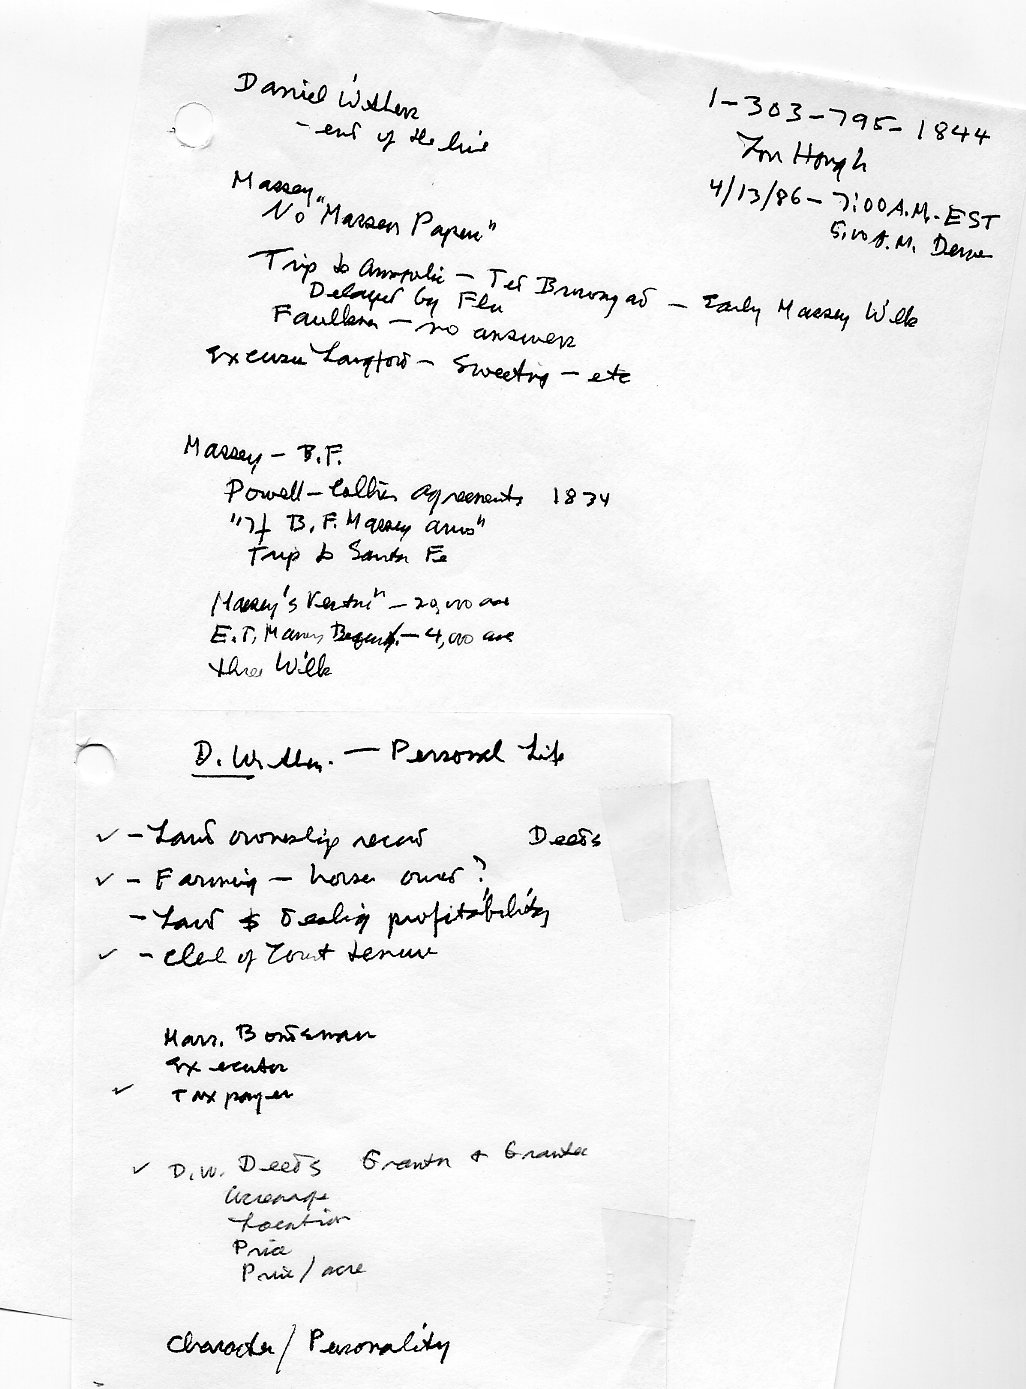 Daniel Withers
- end of the line
1-303-795-1844
Hough
4/13/86 - 7:00 A.M. - EST
5:00 A.M. Denver
Massey
No "Massey Papers"
Trip to Annapolis - Ted - Early Massey Wills
Delayed by Flu
Faulkner - no answers
Excuse Langford - Sweeting - etc
Massey - B.F.
Powell - Collier agreements 1834
"If B.F. Massey arms"
Trip to Santa Fe
Massey's Venture" - 20,000 acre
E.T. Massey Bequest - 4,000 acre
three Wills
D. Withers. - Personal Life
✓ - Land ownership record Deeds
✓ - Farming - horse owner?
- Land $ dealing profitability
✓ - Clerk of Court tenure
Marr. Bondsman
Executor
✓ Tax payer
✓ D.W. Deeds Grantor + Grantee
Acreage
Location
Price
Price/acre
Character/Personality